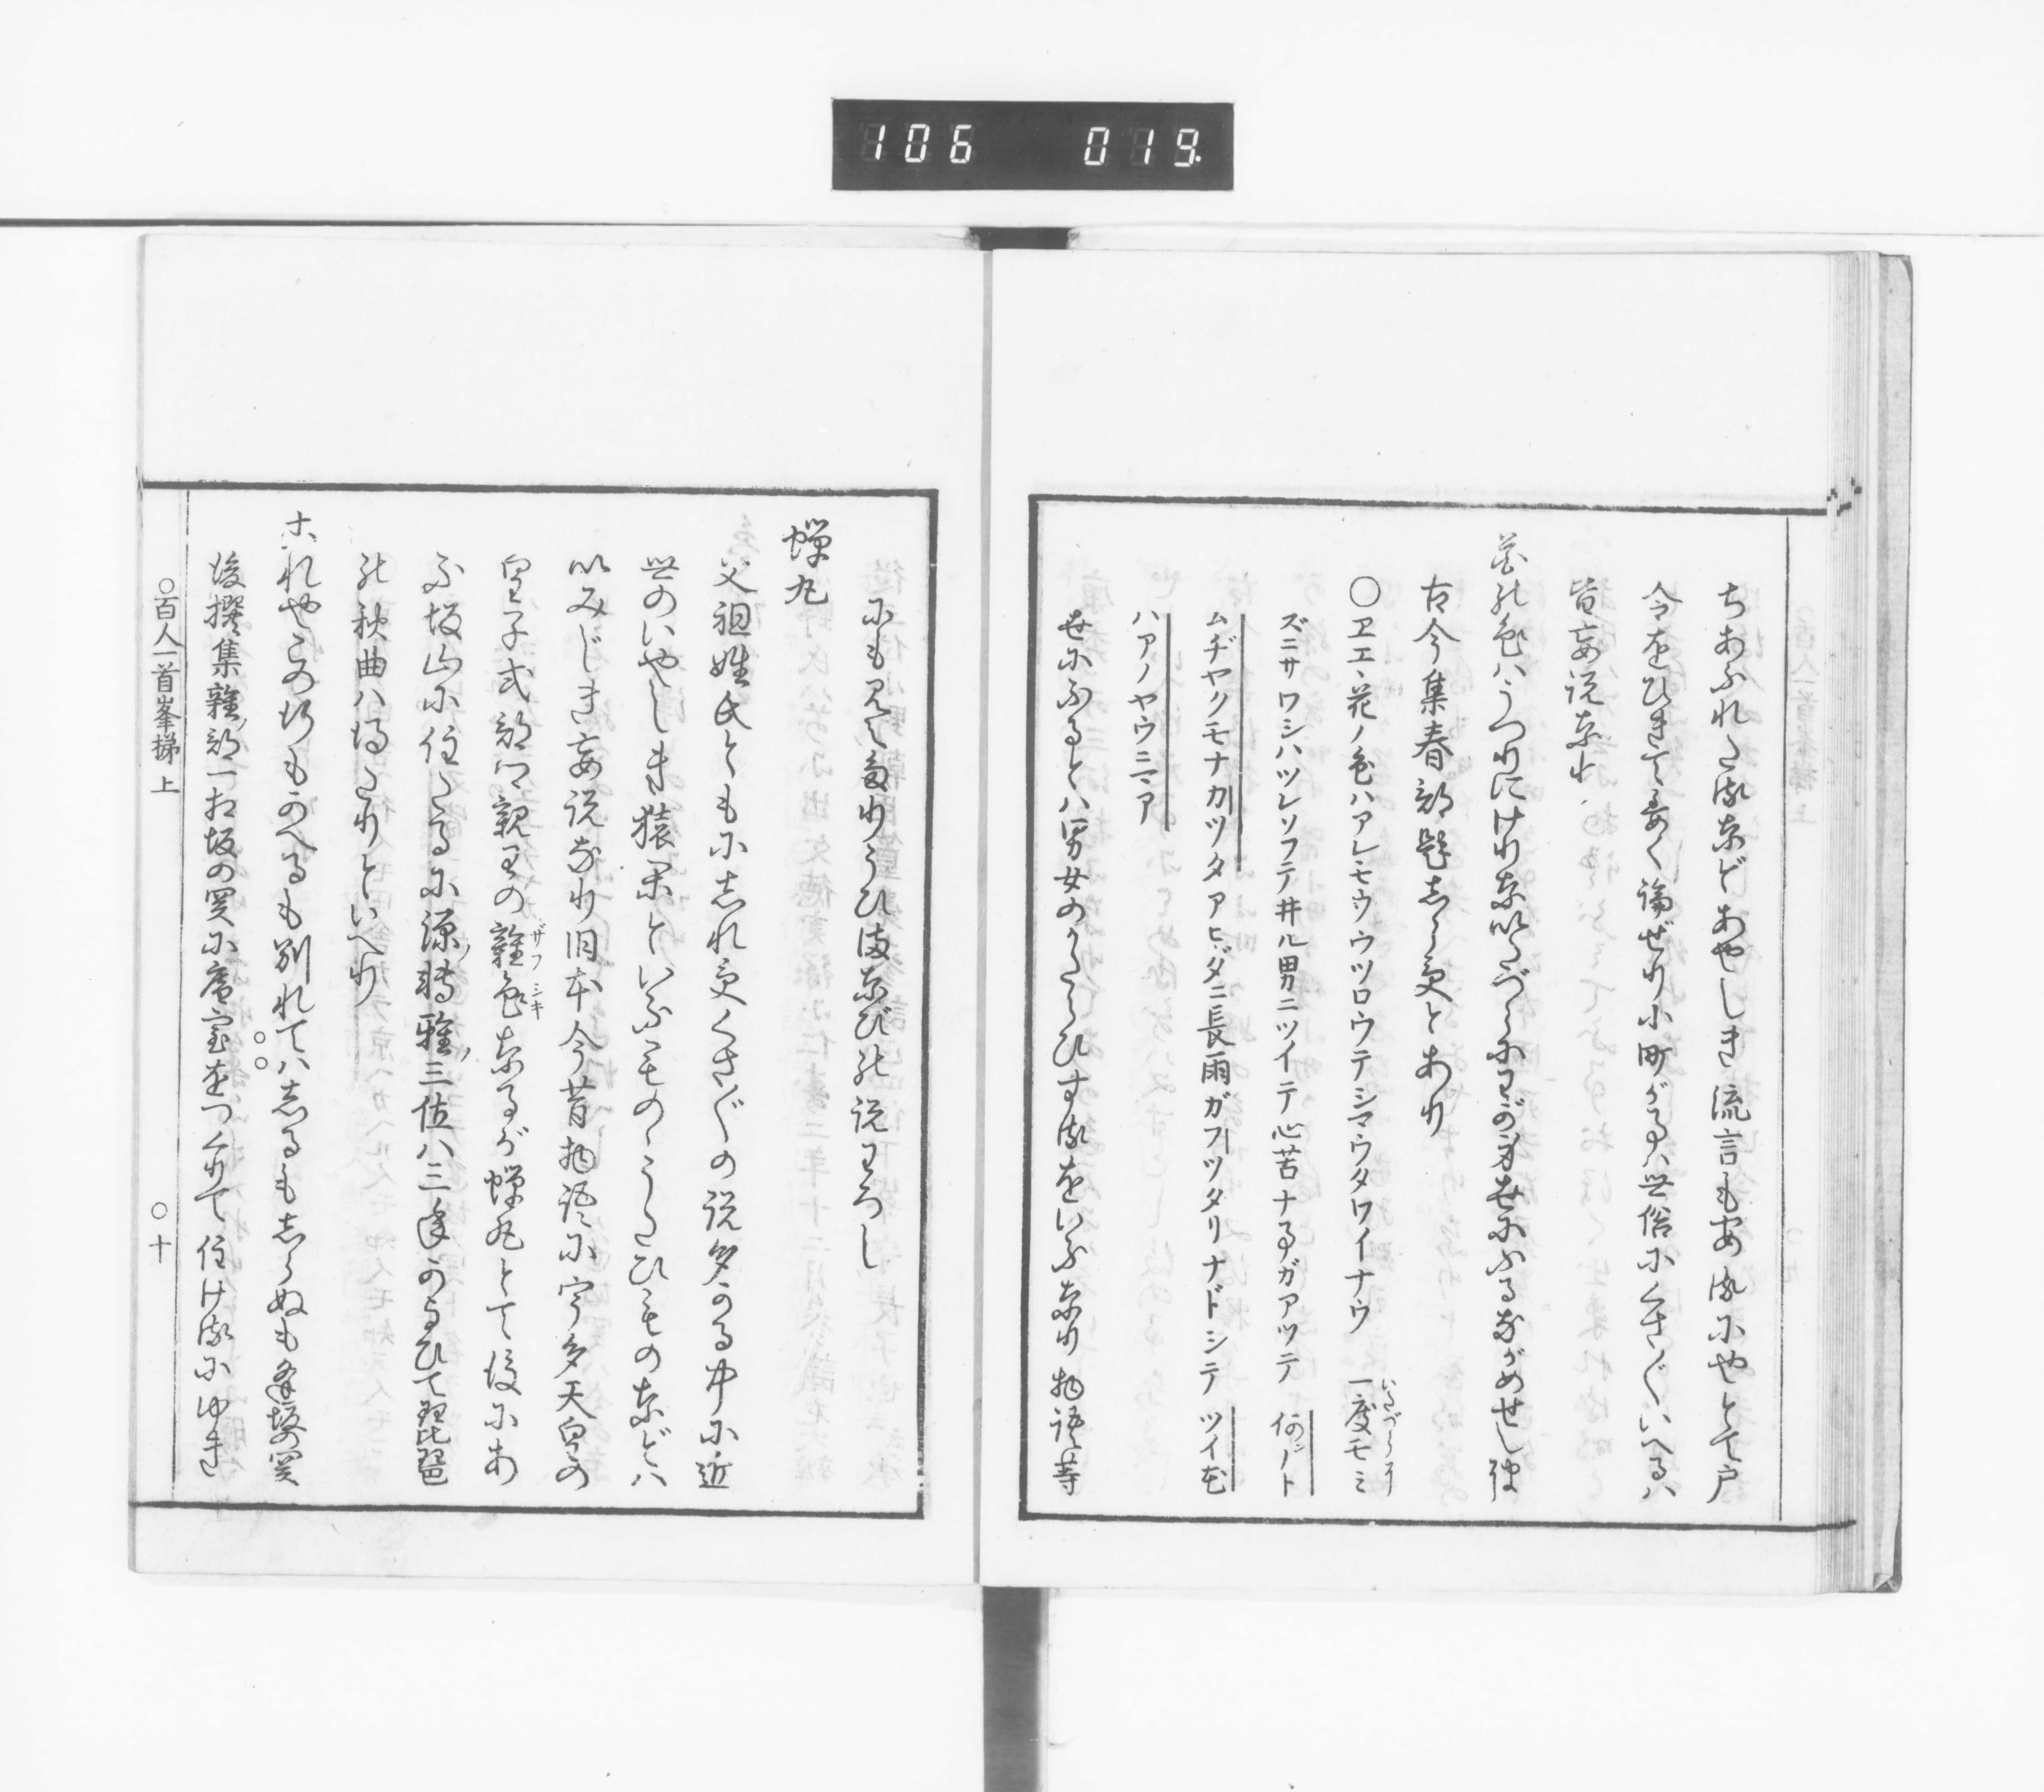 106 019
ちあふれたるなどあやしき流言も出るにやとて戸
今をひきてくはしく論ぜり小町がるハ世俗にくさ〴〵いへるハ
皆妄説なり
花の色ハうつりにけりないたづらにわが身世にふるながめせしまに
古今集春部題しらずとあり
〇ヱエヽ花ノ色ハアレモウウツロウテシマウタワイナウ 一度モミ
いたづらに
ズニサワシハツレソフテ井ル男ニツイテ心苦ナ事ガアツテ 何ノト
ムヂヤクモナカツタアヒダニ長雨ガフツタリナドシテ ツイ花
ハアノヤウニマア
世にふるとハ男女のかたらひするをいふなり物語等
にも見えたりうひまなびの説わろし
蝉丸
父祖姓氏ともにしれずくさ〴〵の説多かる中に近
世のいやしき猿楽といふものゝうたひものなどハ
いみじき妄説なり旧本今昔物語に宇多天皇の
皇子式部卿親王の雑色なるが蝉丸とて後にあ
ザフシキ
ふ坂山に住たるに源博雅三位ハ三年かよひて琵琶
の秘曲ハ得たりといへり
これやこの行もかへるも別れてハしるもしらぬも逢坂の関
後撰集雑部一相坂の関に庵室をつくりて住けるにゆき
〇百人一首峯梯 上
〇十